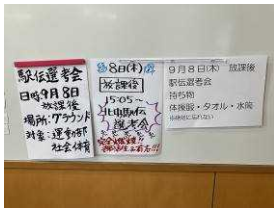 駅伝選考会
日時9月8日
放課後
場所:グラウンド
対象:運動部
社会体育
8日(木)
放課後
15:05~
北中駅伝
選考会
完全燃焼!
9月8日(木) 放課後
駅伝選考会
持ち物
体操服・タオル・水筒